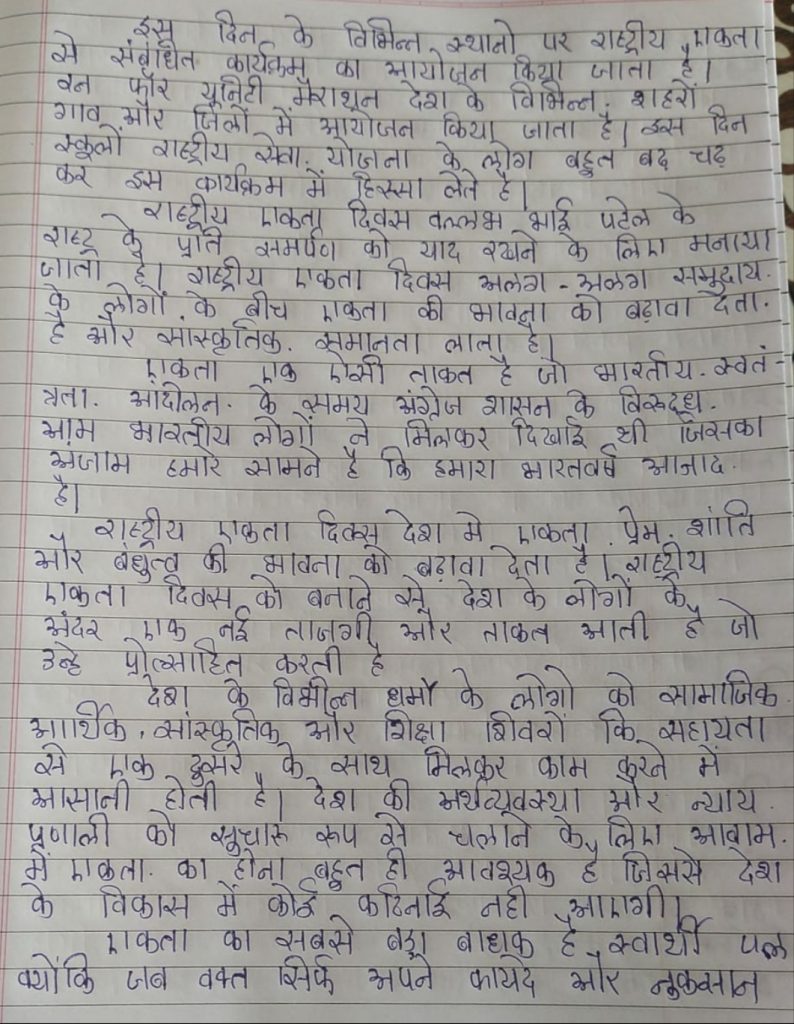 इस दिन के विभिन्न स्थानो पर राष्ट्रीय एकता
से संबंधित कार्यक्रम का आयोजन किया जाता है।
रन फॉर यूनिटी मैराथन देश के विभिन्न. शहरों
गाव और जिलों में आयोजन किया जाता है। इस दिन
स्कूलों राष्ट्रीय सेवा. योजना के लोग बहुत बढ़ चढ़
कर इस कार्यक्रम में हिस्सा लेते है।
राष्ट्रीय एकता दिवस वल्लभ भाई पटेल के
राष्ट्र के प्रति समर्पण को याद रखने के लिए मनाया
जाता है। राष्ट्रीय एकता दिवस अलग - अलग समुदाय.
के लोगों के बीच एकता की भावना को बढ़ावा देता.
है और सांस्कृतिक. समानता लाता है।
एकता एक ऐसी ताकत है जो भारतीय. स्वतं-
त्रता. आंदोलन. के समय अंग्रेज शासन के विरुद्ध.
आम भारतीय लोगों ने मिलकर दिखाई थी जिसका
अंजाम हमारे सामने है कि हमारा भारतवर्ष आजाद.
है।
राष्ट्रीय एकता दिवस देश मे एकता, प्रेम, शांति
और बंधुत्व की भावना को बढ़ावा देता है। राष्ट्रीय
एकता दिवस को बनाने से देश के लोगों के
अंदर एक नई ताजगी और ताकत आती है जो
उन्हे प्रोत्साहित करती है
देश के विभीन्न धर्मों के लोगो को सामाजिक
आर्थिक, सांस्कृतिक और शिक्षा शिवरों कि सहायता
से एक दुसरे के साथ मिलकर काम करने में
आसानी होती है। देश की अर्थव्यवस्था और न्याय.
प्रणाली को सुचारू रूप से चलाने के लिए आवाम.
में एकता. का होना बहुत ही आवश्यक है जिससे देश
के विकास में कोई कठिनाई नही आएगी।
एकता का सबसे बड़ा बाधक है स्वार्थी
क्योंकि जब वक्त सिर्फ अपने फायदे और नुकसान